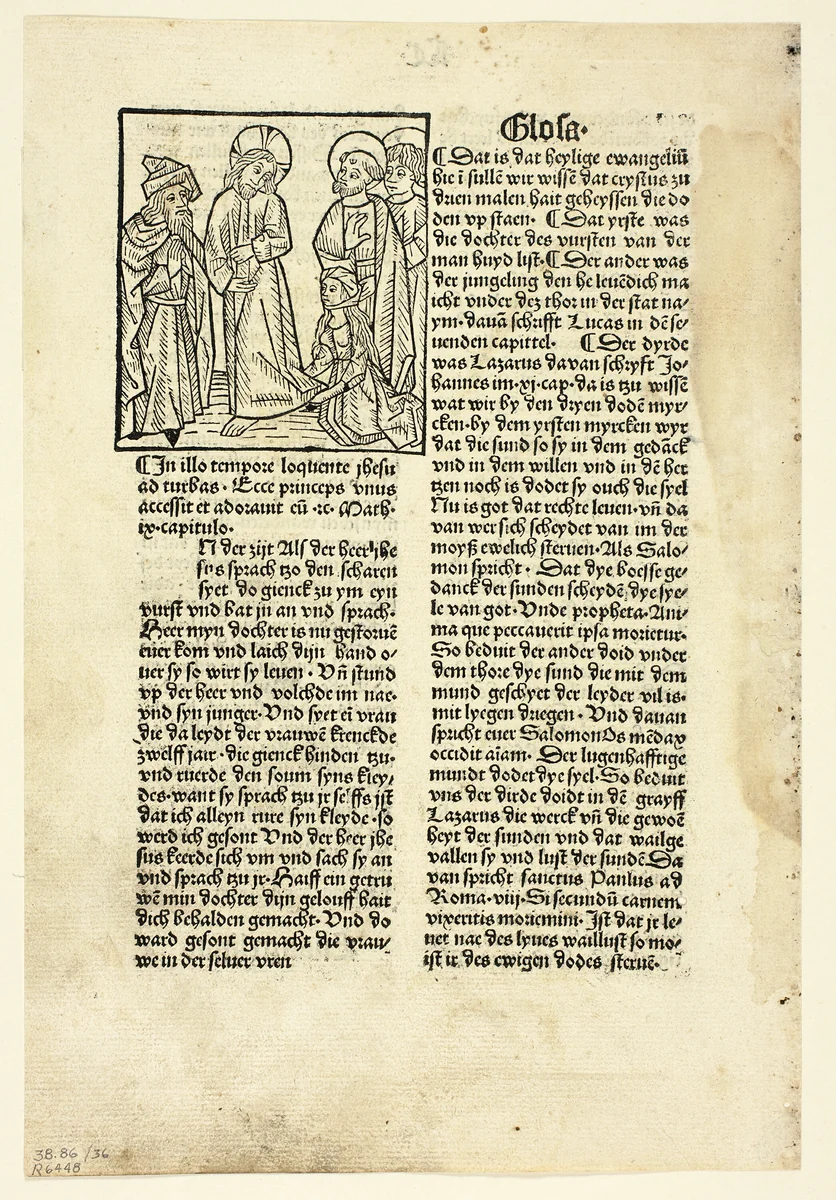 ¶In illo tempore loquente jhesu
ad turbas· Ecce princeps vnus
accessit et adorauit eū ·ꝛc· Math·
ix·capitulo·
N der zijt Als der heer jhe
sus sprach tzo den scharen
syet do gienck zu ym eyn
vurst vnd bat jn an vnd sprach·
Heer myn dochter is nu gestoruē
euer kom vnd laich dijn hand o⸗
uer sy so wirt sy leuen · Vn̄ stund
vp der heer vnd volchde im nae·
vnd syn junger·Vnd syet ei vrau
die da leydt der vrauwē krenckde
zwelff jair ·die gienck hinden tzu·
vnd ruerde den soum syns kley⸗
des·want sy sprach tzu jr selffs jst
dat ich alleyn rure syn kleyde ·so
werd ich gesont Vnd der heer jhe
sus keerde sich vm vnd sach sy an
vnd sprach tzu jr·Haiff ein getru
wē min dochter dijn gelouff hait
dich behalden gemacht·Vnd do
ward gesont gemacht die vrau⸗
we in der seluer vren
Glosa·
¶Dat is dat heylige ewangeliū
hie ī sullē wir wissē dat crystus zu
drien malen hait geheyssen die do
den vp staen· ¶Dat yrste was
die dochter des vursten van der
man huyd list·¶Der ander was
der jungeling den he leuēdich ma
icht vnder dez thor in der stat na⸗
ym·dauā schrifft Lucas in dē se⸗
uenden capittel· ¶Der dyrde
was Lazarus davan schryft Jo⸗
hannes im·xj·cap·da is tzu wissē
wat wir by den dryen dodē myr⸗
cken·by dem yrsten myrcken wyr
dat die sund so sy in dem gedāck
vnd in dem willen vnd in dē her
tzen noch is dodet sy ouch die syel
Nu is got dat rechte leuen·vn̄ da
van wer sich scheydet van im der
moyß ewelich steruen·Als Salo⸗
mon spricht · Dat dye boesse ge⸗
danck der sunden scheydē dye sye⸗
le van got·Vnde propheta·Ani⸗
ma que peccauerit ipsa morietur·
So beduit der ander doid vnder
dem thore dye sund die mit dem
mund geschyet der leyder vil is·
mit lyegen driegen · Vnd dauan
spricht euer Salomon Os mēdax
occidit aīam· Der lugenhafftige
mundt dodet dye syel·So beduit
vns der dirde doidt in dē grayff
Lazarus die werck vn̄ die gewoē
heyt der sunden vnd dat wailge
vallen sy vnd lust der sundē Da
van spricht sanctus Paulus ad
Roma·viij·Si secundū carnem
vixeritis moriemini· Jst dat jr le⸗
uet nae des lyues waillust so mo⸗
ist ir des ewigen dodes steruē·
38.86/36
R6448